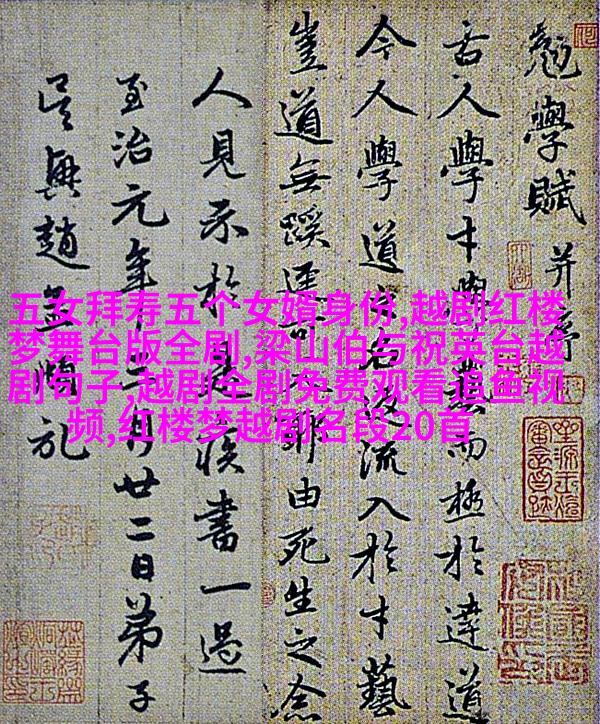 五女拜寿五个女婿身份,越剧红楼
梦舞台版全剧,梁山伯与祝英台越
剧句子,越剧全剧免费观看追鱼视
频,红楼梦越剧名段20首
勉學賦并序
古人學才與藝而極於達道
今人學道之名流入於才藝
豈道無蹊逕耶由死生之念
人見示於書一過
至治元年十二月廿二日弟子
吳興趙孟頫